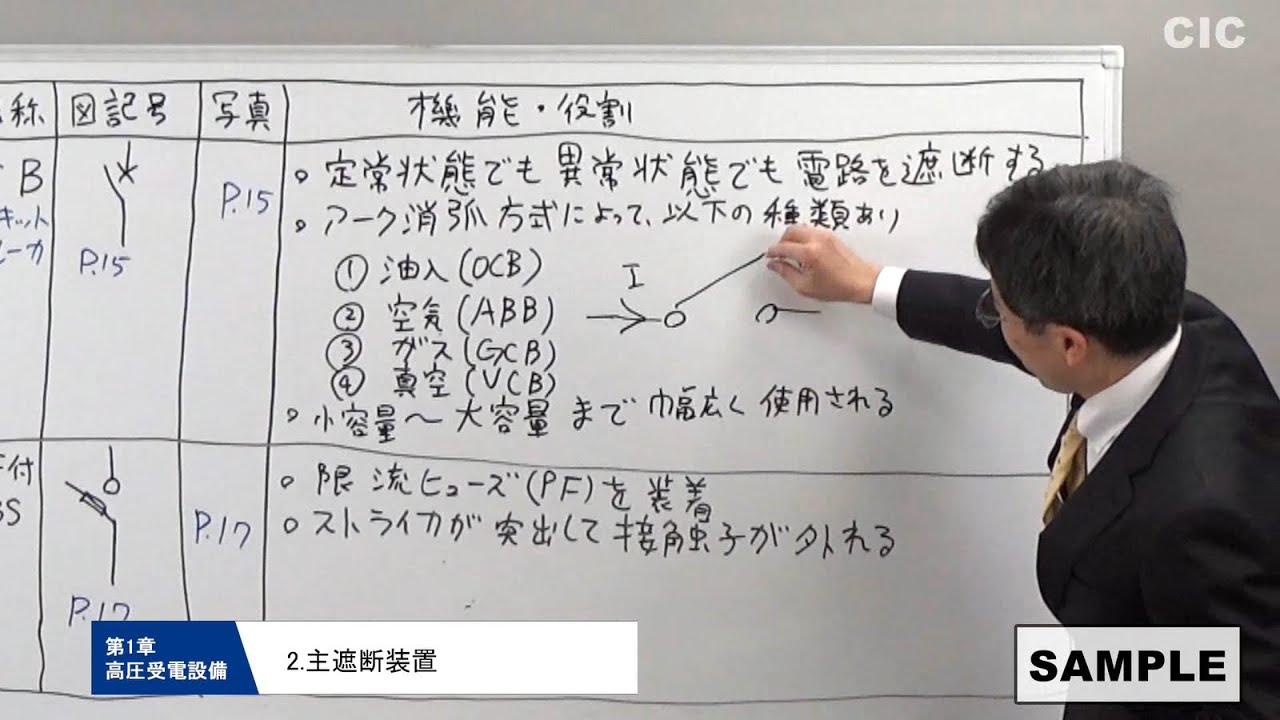 CIC
称 図記号 写真 機能・役割
B P.15 。定常状態でも異常状態でも電路を遮断する
キット
ーカ P.15
。アーク消弧方式によって、以下の種類あり
① 油入(OCB)
② 空気(ABB)
③ ガス(GCB)
④ 真空(VCB)
I
。小容量〜大容量まで巾幅広く使用される
付
BS P.17 P.17
。限流ヒューズ(PF)を装着
。ストライカが突出して接触子が外れる
第1章
高圧受電設備
2.主遮断装置
SAMPLE